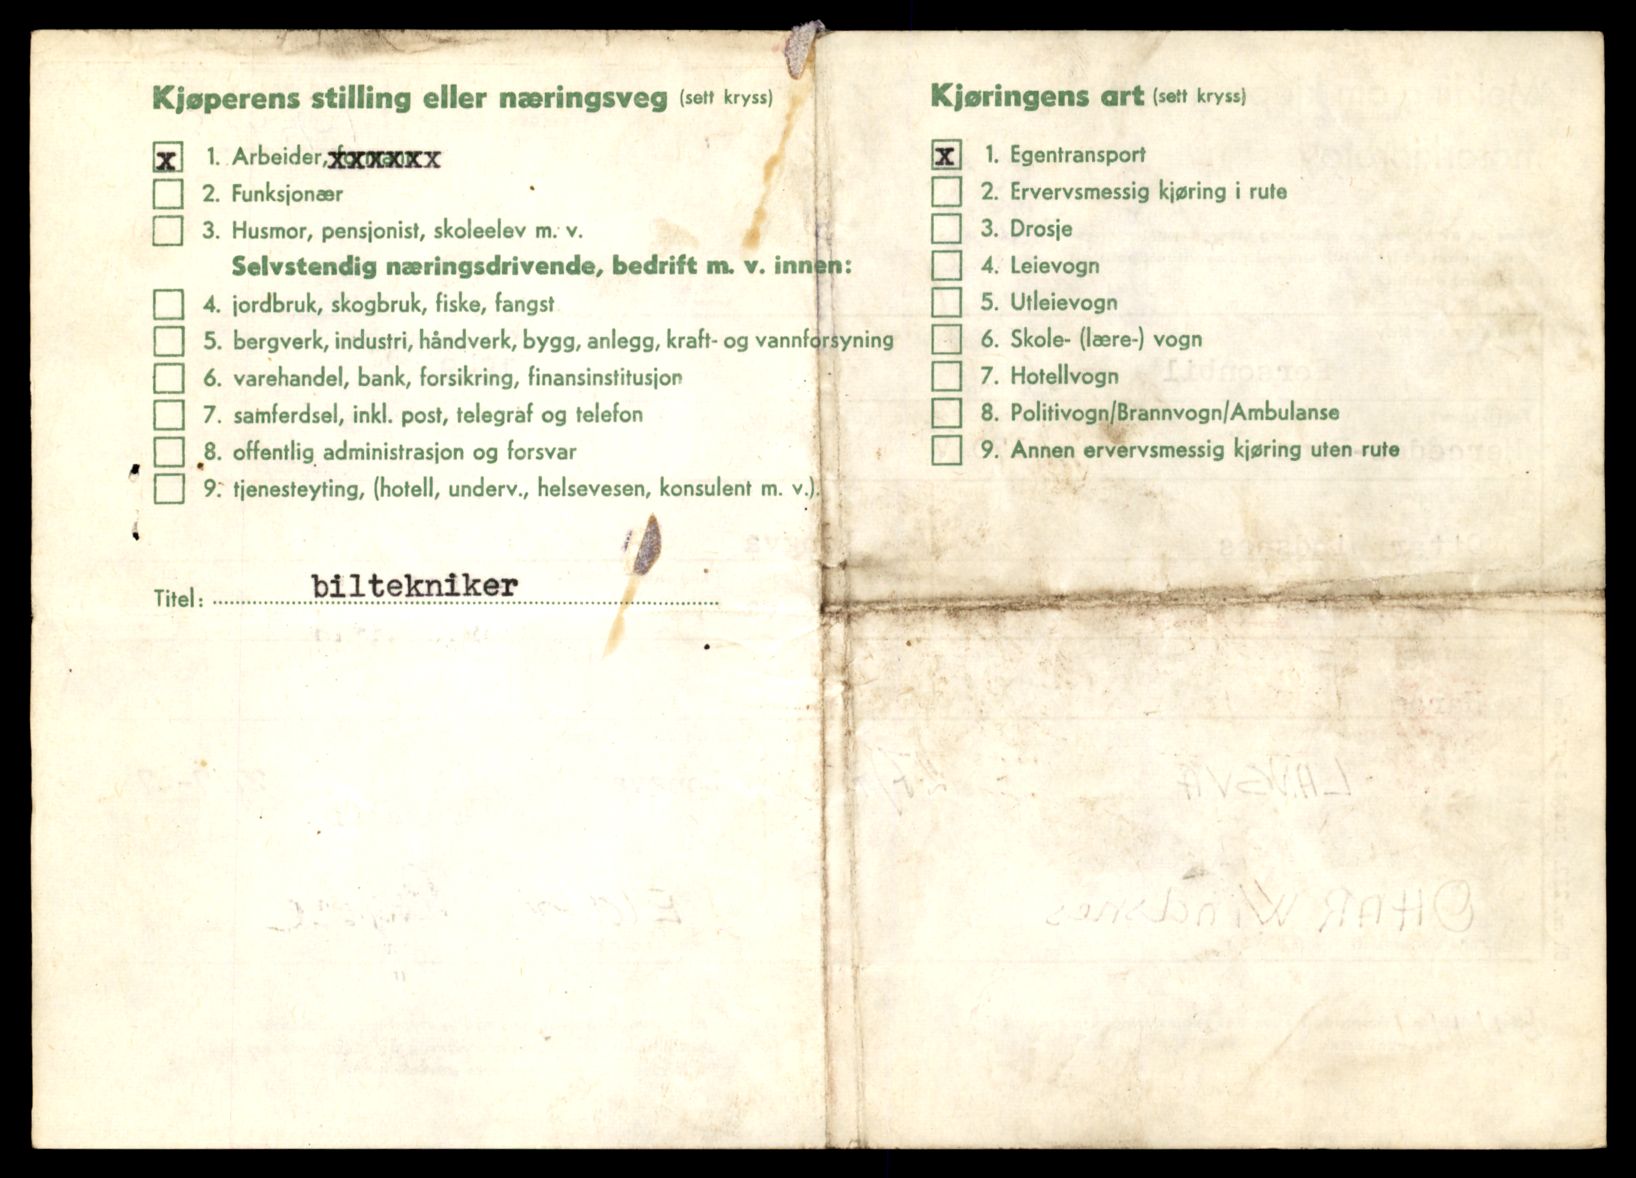 Kjøperens stilling eller næringsveg (sett kryss)
x 1. Arbeider, xxxxxxx
2. Funksjonær
3. Husmor, pensjonist, skoleelev m. v.
Selvstendig næringsdrivende, bedrift m. v. innen:
4. jordbruk, skogbruk, fiske, fangst
5. bergverk, industri, håndverk, bygg, anlegg, kraft- og vannforsyning
6. varehandel, bank, forsikring, finansinstitusjon
7. samferdsel, inkl. post, telegraf og telefon
8. offentlig administrasjon og forsvar
9. tjenesteyting, (hotell, underv., helsevesen, konsulent m. v.).
Titel: biltekniker
Kjøringens art (sett kryss)
x 1. Egentransport
2. Ervervsmessig kjøring i rute
3. Drosje
4. Leievogn
5. Utleievogn
6. Skole- (lære-) vogn
7. Hotellvogn
8. Politivogn/Brannvogn/Ambulanse
9. Annen ervervsmessig kjøring uten rute